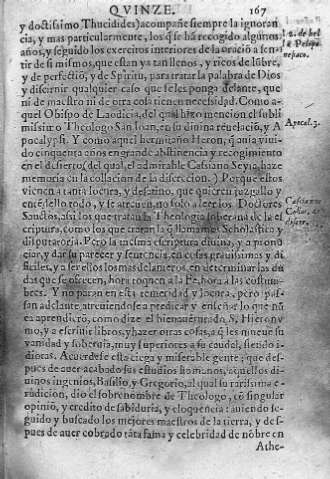 QVINZE. 167
y doctissimo Thucidides) acompañe siempre la ignoran
cia, y mas particularmente, los q̃ se hã recogido algunos
años, y seguido los exercitos interiores de la oraciõ a sen-
tir de si mismos, que estan ya tan llenos, y ricos de lũbre,
y de perfeciõ, y de Spiritu, para tratar la palabra de Dios
y discernir qualquier caso que se les ponga delante, que
ni de maestro ni de otra cosa tienen necesidad. Como a-
quel Obispo de Laodicia, del qual hizo mencion el subli
missimo Theologo San Ioan, en su diuina reuelaciõ, y A
pocalypsi. Y como aquel hermitaño Heron, q̃ auia viui-
do cinquenta años en grande abstinencia y recogimiento
en el desierto, del qual, el admirable Cassiano haze
memoria en la collacion de la discrecion. ) Porque estos
vienen a tanta locura, y desatino, que quieren juzgallo y
entẽdello todo, y se atreuen, no solo a leer los Doctores
Sanctos, assi los que tratan la Theologia soberana de la es
criptura, como los que tratan la q̃ llaman Scholastica y
disputatoria. Pero la mesma escriptura diuina, y a pronũ
ciar, y dar su parecer y sentencia, en cosas grauissimas y di
ficiles, y a ser ellos los mas delanteros, en determinar las du
das que se ofrecen, hora toquen a la Fe, hora a las costum-
bres. Y no paran en esta temeridad y locura, pero pas-
san adelante, atreuiendose a predicar y enseñar lo que nũ
ca aprendierõ, como dize el bienauenturado S. Hierony
mo, y a escreuir libros, y hazer otras cosas, a q̃ les mueue su
vanidad y soberuia, muy superiores a su caudal, siendo i-
diotas. Acuerdese esta ciega y miserable gente, que des-
pues de auer acabado sus estudios humanos, aquellos di-
uinos ingenios, Basilio, y Gregorio, al qual su rarissima e-
rudicion, dio el sobrenombre de Theologo, cõ singular
opiniõ, y credito de sabiduria, y eloquencia: auiendo se-
guido y buscado los mejores maestros de la tierra, y des-
pues de auer cobrado tãta fama y celebridad de nõbre en
Athe-
l. 2. de bel
lo Pelopo
nesiaco.
Apocal. 3.